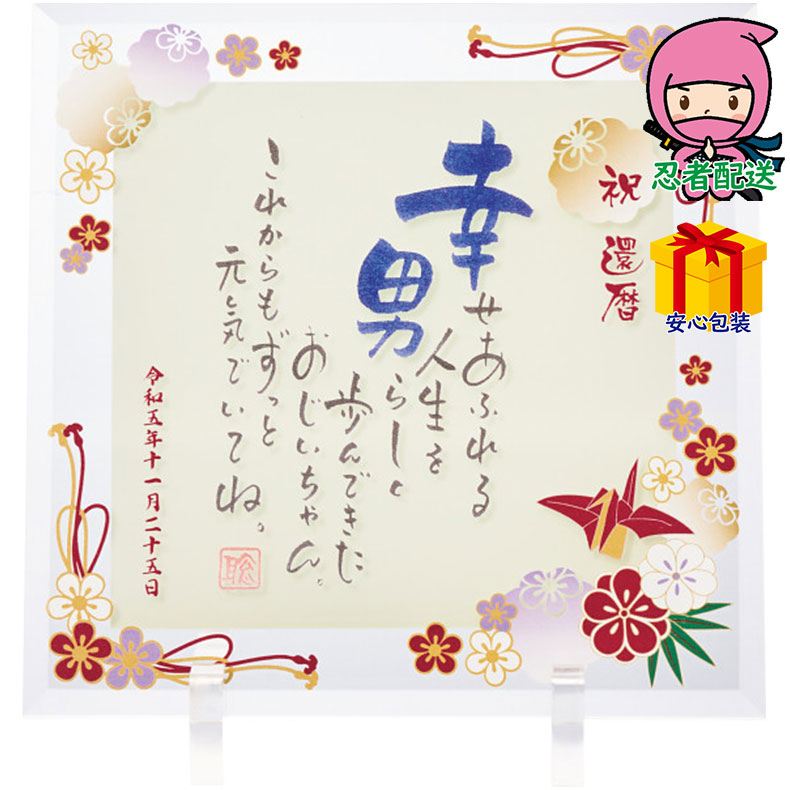 忍者配送
安心包装
祝 還暦
幸せあふれる
人生を
男らしく
歩んできた
おじいちゃん。
これからもずっと
元気でいてね。
令和五年十一月二十五日
聡